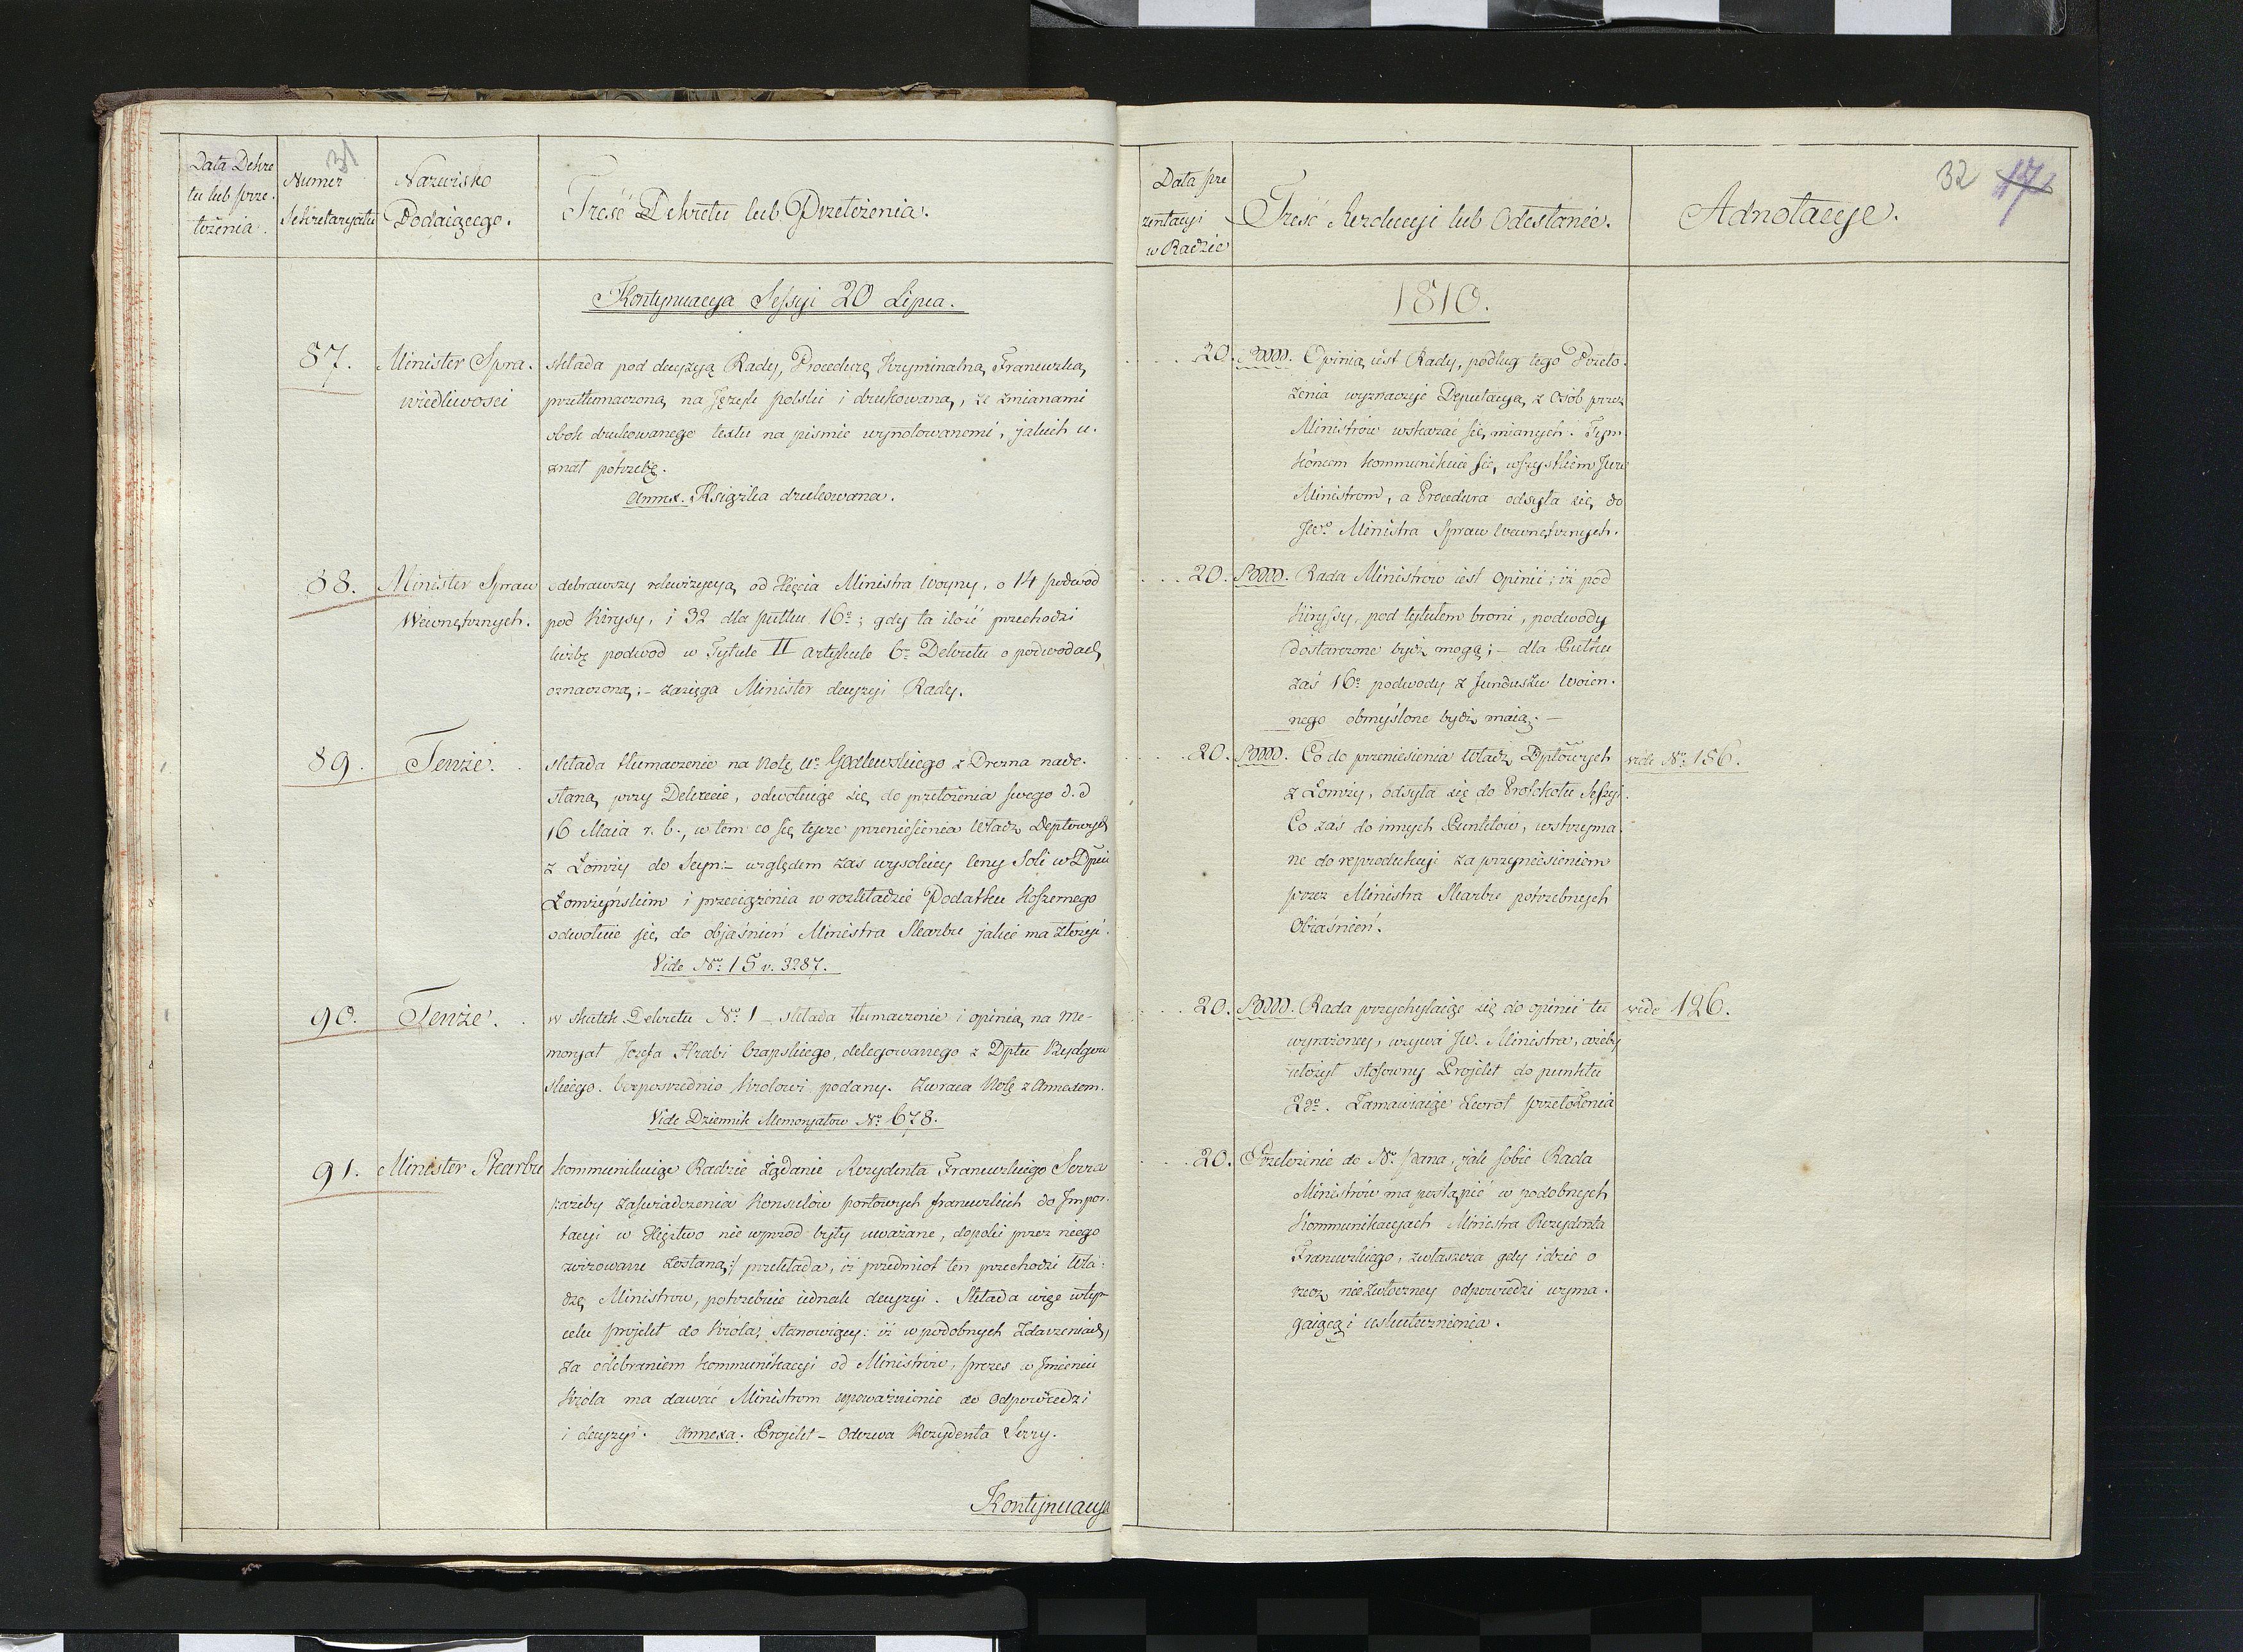 31
Data Dekre
tu lub prze-
łożenia.
Numer
Sekretaryatu
Nazwisko
Podaiącego.
Treść Dekretu lub Przełożenia.
Kontynuacya Sessyi 20 Lipca.
87.
Minister Spra-
wiedliwosci
składa pod decyzyą Rady, Procedurę Kryminalną Francuzką
przetłumaczoną na Język polski i drukowaną, ze zmianami
obok drukowanego textu na pismie wynotowanemi, jakich u-
znał potrzebę.
Annex. Książka drukowana.
88.
Minister Spraw
Wewnętrznych.
odebrawszy rekwizycyą od Xięcia Ministra Woyny, o 14 podwod
pod Kirysy, i 32 dla pułku 16o; gdy ta ilość przechodzi
liczbę podwod w Tytule II artykule 6o Dekretu o podwodach
oznaczoną; - zasięga Minister decyzyi Rady.
89.
Tenże.
składa tłumaczenie na Notę Ur Godlewskiego z Drezna nade-
słaną przy Dekrecie, odwołuiąc się do przełożenia swego d. d
16 Maia r. b., w tem co się tycze przeniesienia Władz Deptowych
z Łomży do Seyn: - względem zaś wysokiey Ceny Soli w Dpcie
Łomżyńskim i przeciążenia w rozkładzie Podatku Koszernego
odwołuie się do objaśnień Ministra Skarbu jakie ma złożyć.
Vide No 15 v. 3287.
90.
Tenże.
w skutek Dekretu No 1 - składa tłumaczenie i opinią na Me-
moryał Jozefa Hrabi Czapskiego, delegowanego z Dptu Bydgow
skiego. bezposrednio Krolowi podany. Zwraca Notę z Annexem.
Vide Dziennik Memoryałow No 678.
91.
Minister Skarbu
Kommunikuiąc Radzie żądanie Rezydenta Francuzkiego Serra
/:ażeby zaświadczenia Konsulów portowych francuzkich do Impor-
tacyi w Xięztwo nie wprzod były uważane, dopoki przez niego
zwizowane zostaną:/ przekłada, iż przedmiot ten przechodzi Wła-
dzę Ministrow, potrzebuie iednak decyzyi. Składa więc w tym
celu projekt do Króla, stanowiący: iż w podobnych zdarzeniach,
za odebraniem kommunikacyi od Ministrów, prezes w Imieniu
Króla ma dawać Ministrom upoważnienie do Odpowiedzi
i decyzyi. Annexa. Projekt - Odezwa Rezydenta Serry.
Kontynuacya
32 17
Data pre
zentacyi
w Radzie
Treść Rezolucyi lub Odesłanie.
Adnotacye.
1810.
20.
Opinią iest Rady, podług tego Przeło-
żenia wyznaczyć Deputacyą z Osób przez
Ministrów wskazać się mianych. Tym
końcem kommunikuie się wszystkiem JWW
Ministrom, a Procedura odsyła się do
JWo Ministra Spraw Wewnętrznych.
20.
Rada Ministrów iest Opinii; iż pod
Kiryssy, pod tytułem broni, podwody
dostarczone bydź mogą; - dla Pułku
zaś 16o podwody z funduszu Woien-
nego obmyślone bydź maią. -
20.
Co do przeniesienia Władz Dptowych
z Łomży, odsyła się do Protokołu Sessyi.
Co zaś do innych Punktów, wstrzyma-
ne do reprodukcyi za przyniesieniem
przez Ministra Skarbu potrzebnych
Obiaśnień.
vide No 186.
20.
Rada przychylaiąc się do opinii tu
wyrażoney, wzywa JW. Ministra, ażeby
ułożył stosowny Projekt do punktu
2go. Zamawiaiąc zwrot przełożenia
vide 126.
20.
Przełożenie do No pana, jak sobie Rada
Ministrów ma postąpić w podobnych
Kommunikacyach Ministra Rezydenta
Francuzkiego, zwłaszcza gdy idzie o
rzecz niezwłoczney odpowiedzi wyma-
gaiącą i uskutecznienia.